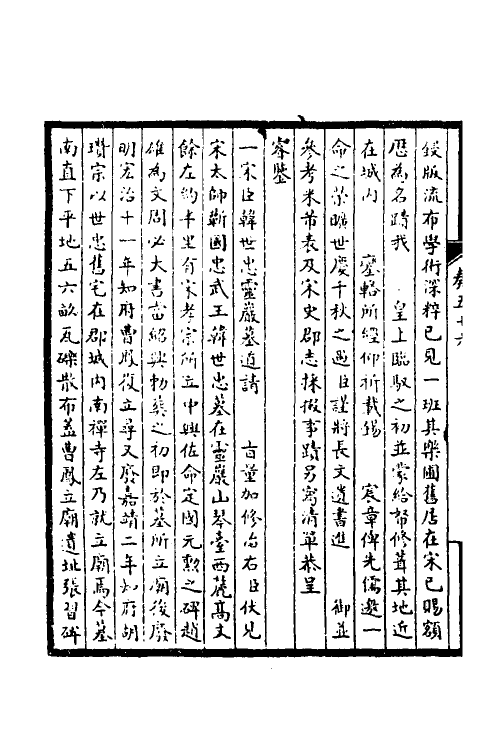 鋟版流布學術深粹已見一班其樂圃舊居在宋已賜額
歴為名蹟我　皇上臨馭之初並蒙給帑修葺其地近
在城内　鑾輅所經仰祈載錫　宸章俾先儒邀一
命之榮曠世慶千秋之遇臣謹將長文遺書進　御並
參考米芾表及宋史郡志採做事蹟另寫清單恭呈
睿鑒
一宋臣韓世忠靈巖墓道請　旨量加修治右臣伏見
宋太師蘄國忠武王韓世忠墓在靈巖山琴臺西麓高丈
餘左約半里有宋孝宗所立中興佐命定國元勲之碑趙
雄為文周必大書當紹興勅葬之初即於墓所立廟後廢
明宏治十一年知府曹鳳復立尋又廢嘉靖二年知府胡
瓚宗以世忠舊宅在郡城内南禪寺左乃就立廟焉今墓
南直下平地五六畝瓦礫散布蓋曹鳳立廟遺址張習碑
卷五十六